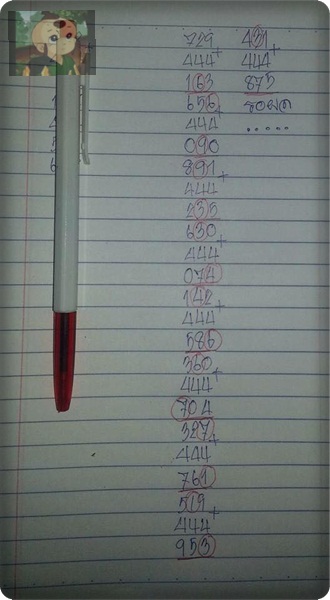 729
444+
163
656
444+
090
891
444+
235
630
444+
074
142
444+
586
360
444+
704
327
444+
761
519
444+
953
431
444+
875
รอผล
.....